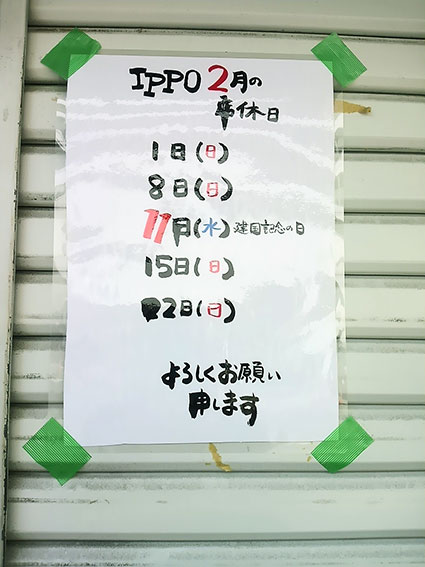 IPPO 2月の
店休日
1日(日)
8日(日)
11日(水)建国記念の日
15日(日)
22日(日)
よろしくお願い
申します